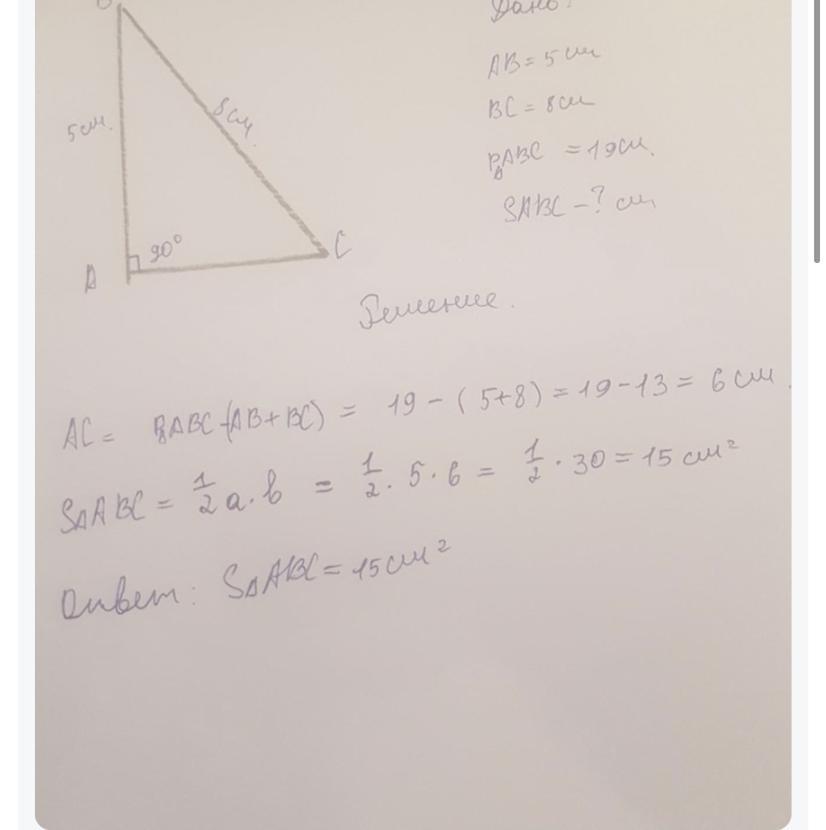 Дано:
AB = 5 см
BC = 8 см
P△ABC = 19 см.
SABC - ? см
5 см.
8 см.
90°
A
C
Решение.
AC = P△ABC-(AB+BC) = 19 - (5+8) = 19 - 13 = 6 см.
S△ABC = 1/2 a·b = 1/2 · 5 · 6 = 1/2 · 30 = 15 см²
Ответ: S△ABC = 15 см²